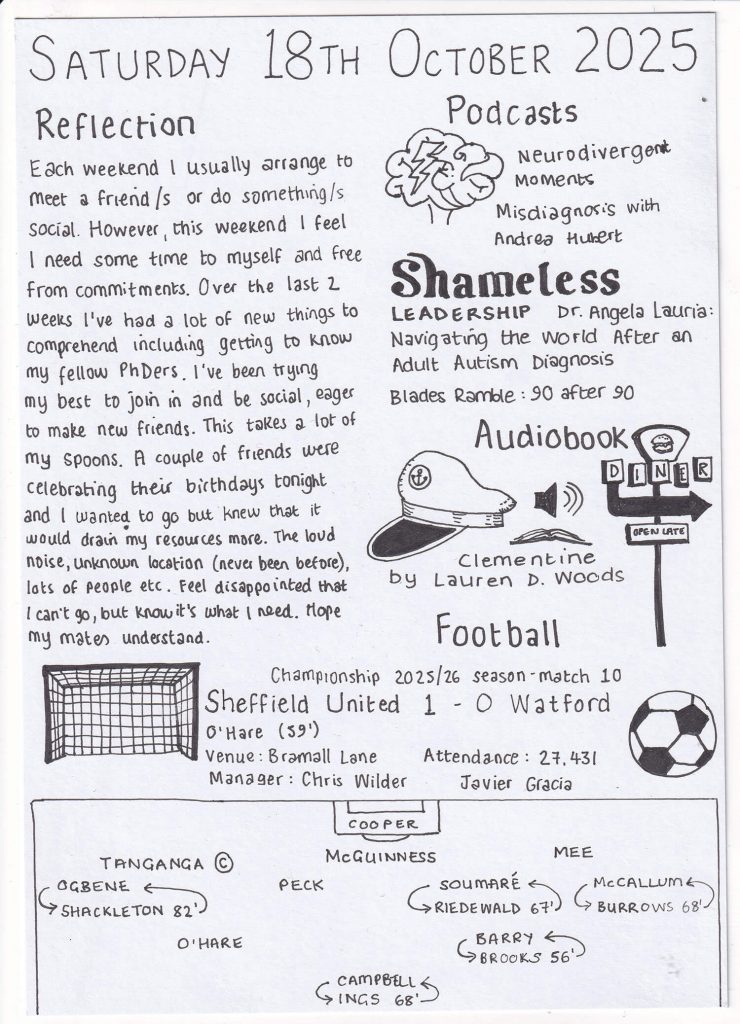 SATURDAY 18TH OCTOBER 2025
Reflection
Each weekend I usually arrange to
meet a friend/s or do something/s
social. However, this weekend I feel
I need some time to myself and free
from commitments. Over the last 2
weeks I've had a lot of new things to
comprehend including getting to know
my fellow PhDers. I've been trying
my best to join in and be social, eager
to make new friends. This takes a lot of
my spoons. A couple of friends were
celebrating their birthdays tonight
and I wanted to go but knew that it
would drain my resources more. The loud
noise, unknown location (never been before),
lots of people etc. Feel disappointed that
I can't go, but know it's what I need. Hope
my mates understand.
Podcasts
Neurodivergent
Moments
Misdiagnosis with
Andrea Hubert
Shameless
LEADERSHIP Dr. Angela Lauria:
Navigating the World After an
Adult Autism Diagnosis
Blades Ramble: 90 after 90
Audiobook
DINER
OPEN LATE
Clementine
by Lauren D. Woods
Football
Championship 2025/26 season - match 10
Sheffield United 1 - 0 Watford
O'Hare (59')
Venue: Bramall Lane Attendance: 27,431
Manager: Chris Wilder Javier Gracia
COOPER
TANGANGA © McGUINNESS MEE
OGBENE PECK SOUMARÉ McCALLUM
SHACKLETON 82' RIEDEWALD 67' BURROWS 68'
O'HARE BARRY
BROOKS 56'
CAMPBELL
INGS 68'